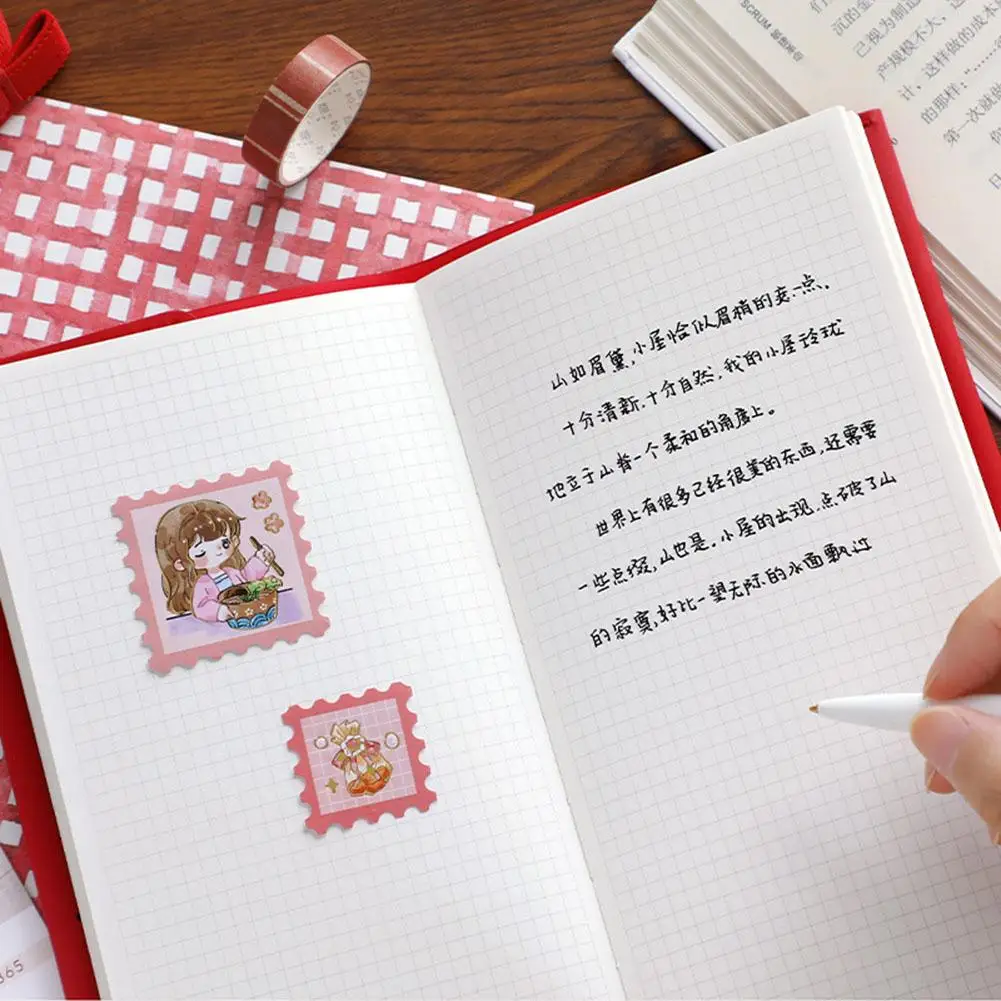 山如眉黛,小屋恰似眉梢的痣一点。
十分清新,十分自然,我的小屋玲珑
地立于山脊一个柔和的角度上。
世界上有很多已经很美的东西,还需要
一些点缀,山也是。小屋的出现,点破了山
的寂寞,好比一望无际的水面飘过
SCRUM
沉的金
己视为制造
产规模不大,这
计,这样做的成本
的那样:"……
第一次就做
365